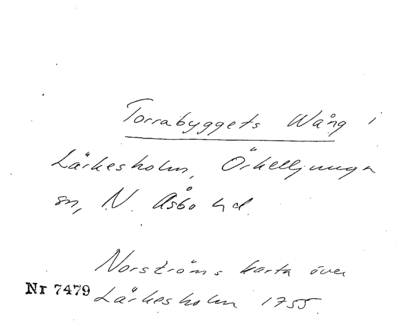 Torrabyggets Wång i
Lärkesholm, Örkelljunga
sn, N. Åsbo hd.
Norströms karta över
Nr 7479 Lärkesholm 1755.